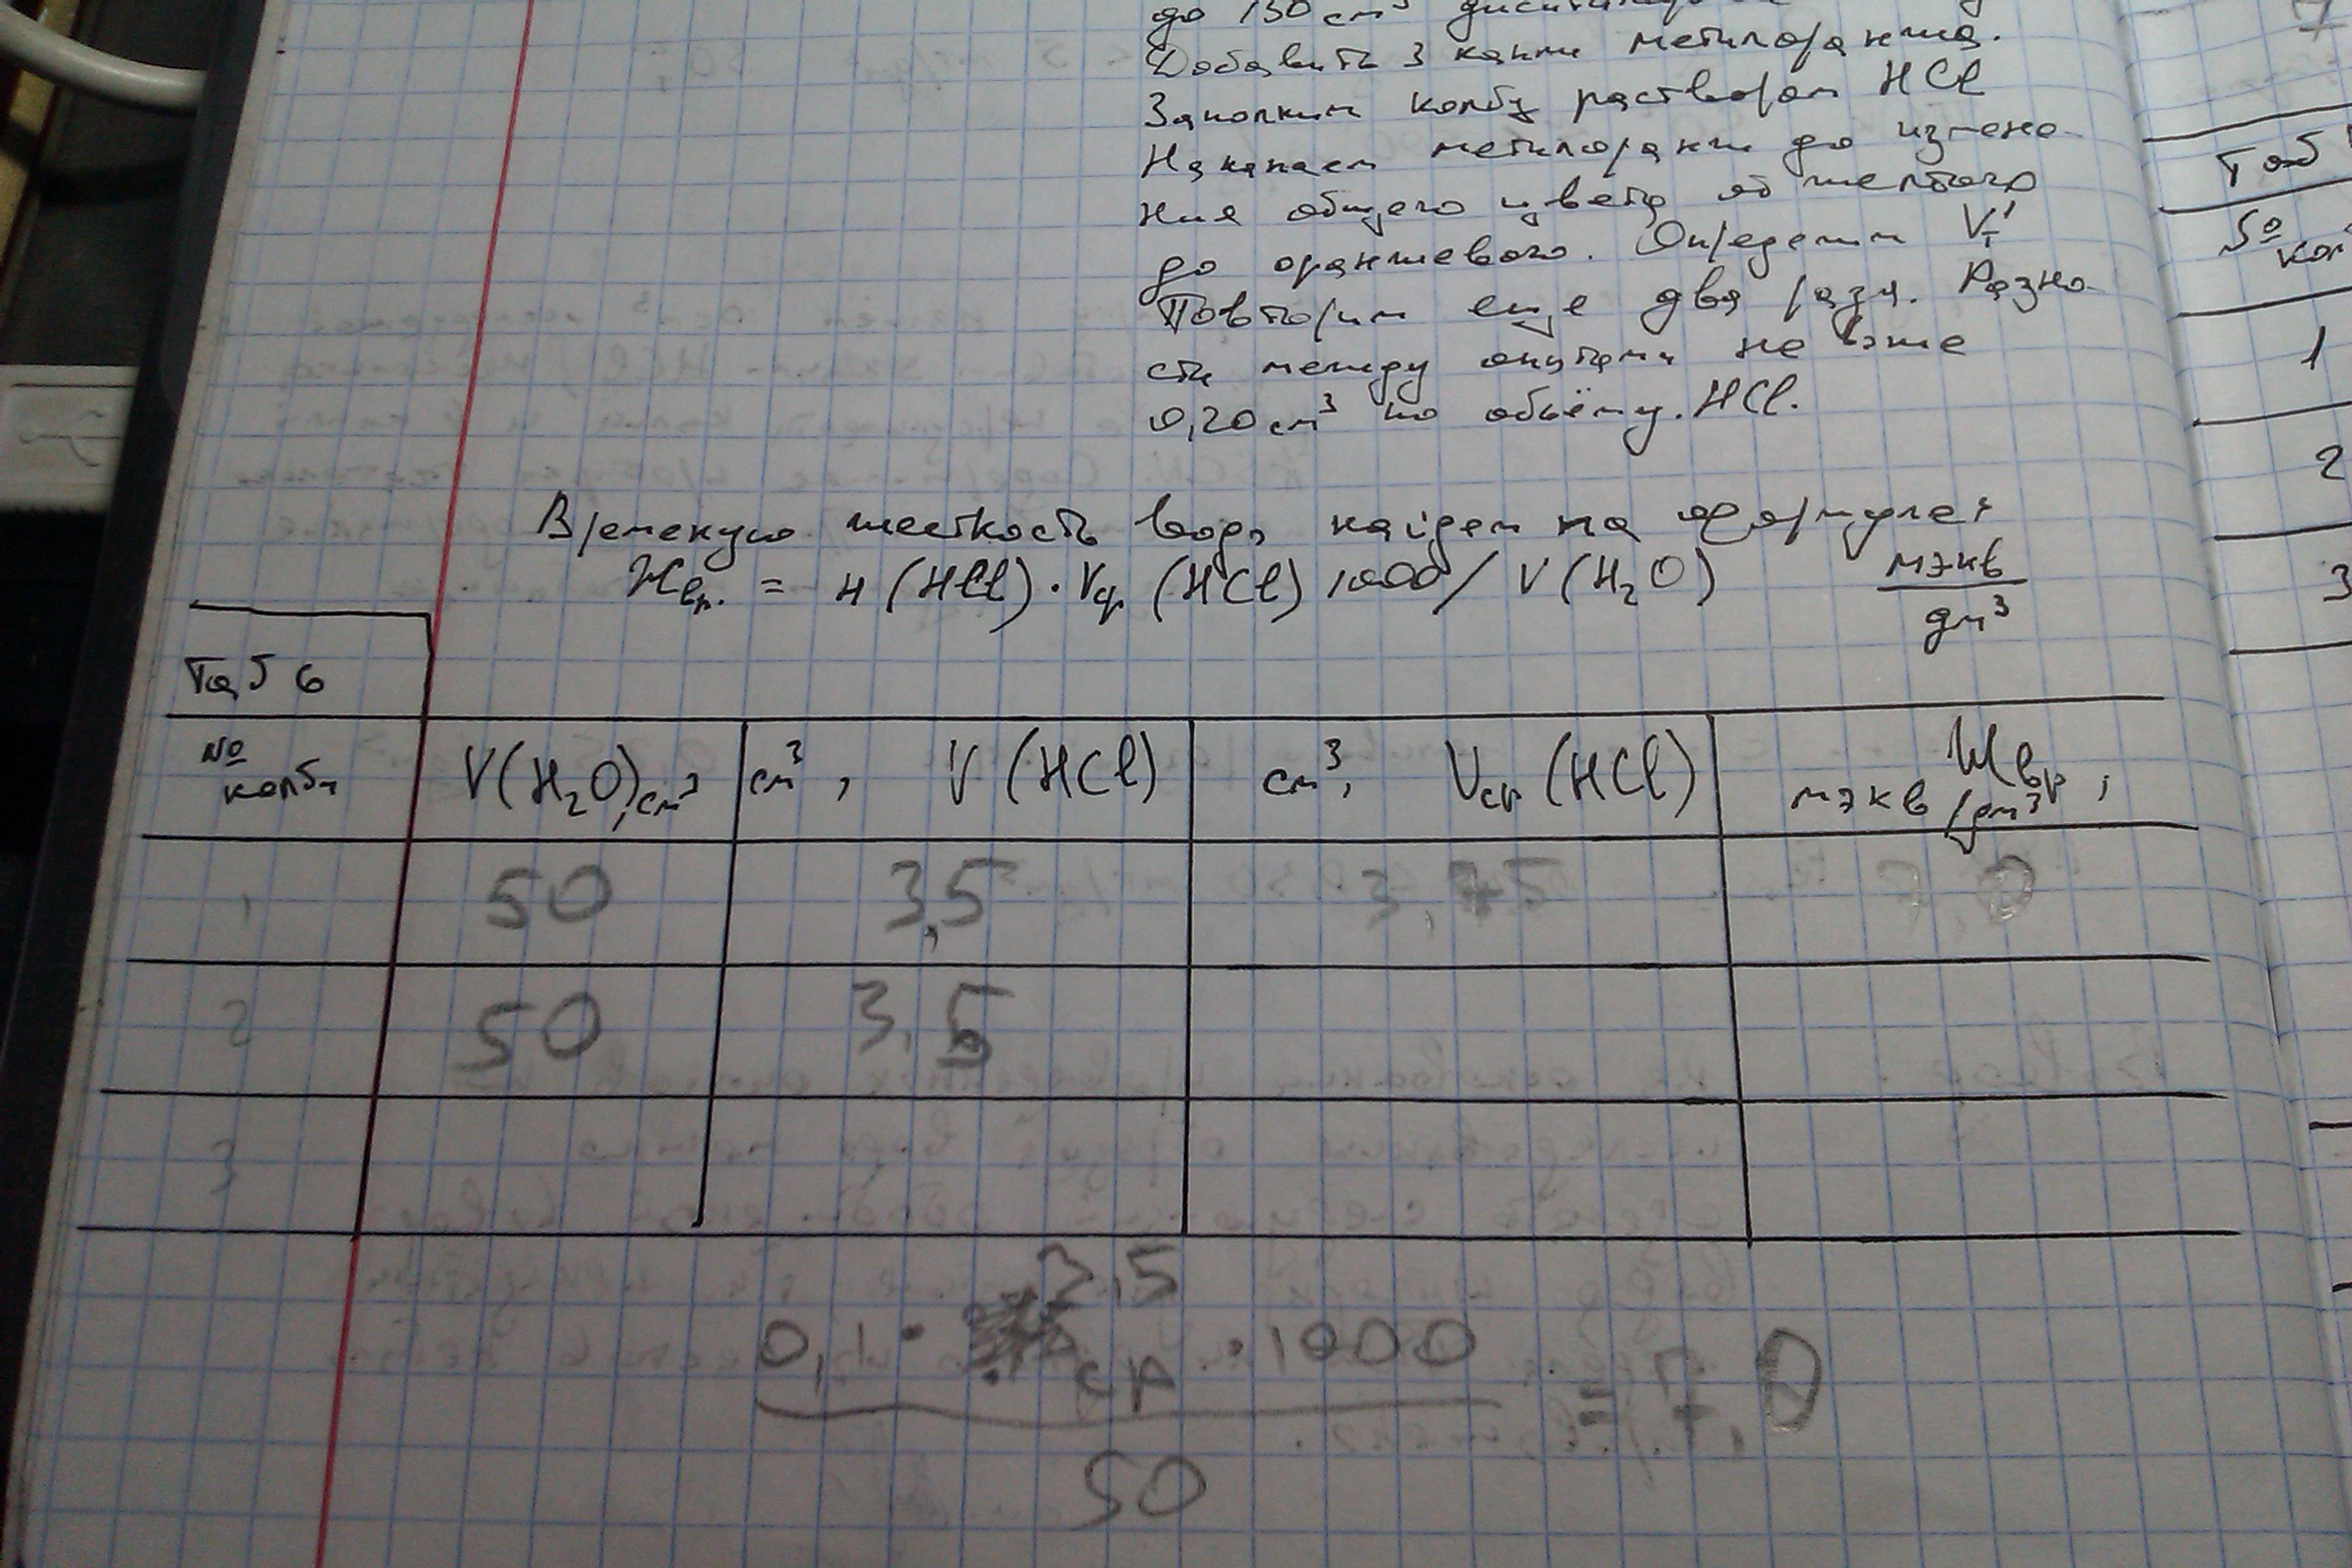 до 150 см³
Добавить 3 капли метилоранжа.
Заполним колбу раствором HCl
Накапаем метилоранж до измене-
ния общего цвета от желтого
до оранжевого. Определим V₁'
Повторим еще два раза. Разно-
сть между опытами не
0,20 см³ по объёму. HCl.
Временую жесткость воды найдем по формуле:
Жвр. = н (HCl) · Vср (HCl) 1000 / V (H₂O) мэкв/дм³
Таб 6
№ колбы V(H₂O), см³ см³, V (HCl) см³, Vср (HCl) Жвр, мэкв/дм³
1 50 3,5 3,45 7,0
2 50 3,5
3
3,5
0,1 · ср · 1000 = 7,0
50
Таб
№
кол
1
2
3